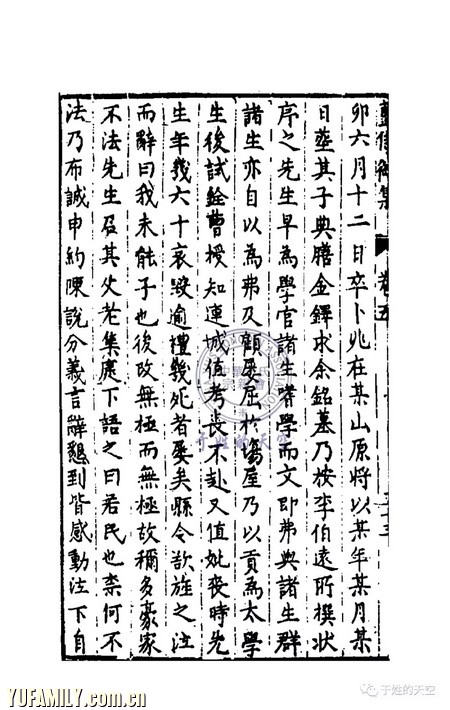 卷五
卯六月十二日卒卜兆在某山原將以某年某月某
日塟其子典膳金鐸求余銘墓乃按李伯遠所撰狀
序之先生早為學官諸生嗜學而文即弗與諸生群
諸生亦自以為弗及顧屢屈於場屋乃以貢為太學
生後試銓曹授知連城值考喪不赴又值妣喪時先
生年幾六十哀毀逾禮幾死者屢矣縣令欲旌之泣
而辭曰我未能子也後改無極而無極故稱多豪家
不法先生召其父老集庭下語之曰若民也柰何不
法乃布誠申約陳說分義言辭懇到皆感動泣下自
YUFAMILY.com
于姓的天空